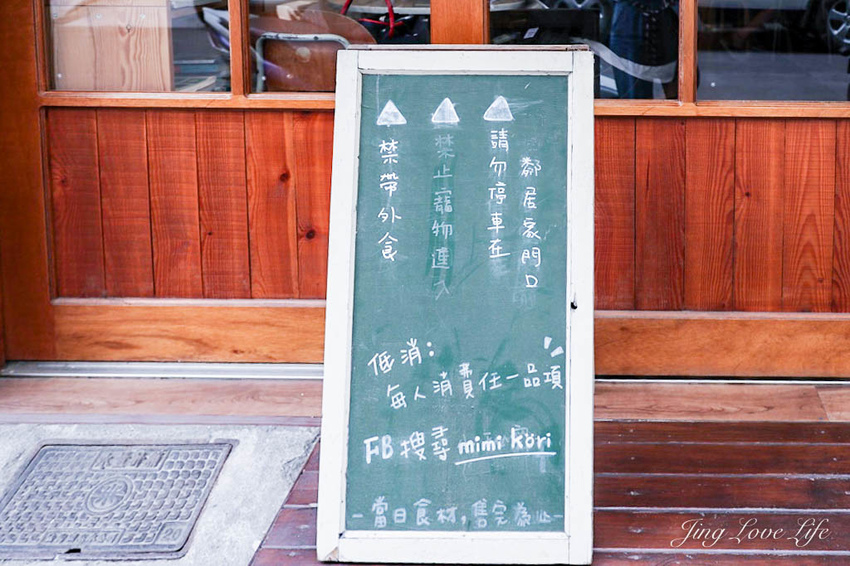 鄰居家門口
請勿停車在
禁止寵物進入
禁帶外食
低消：
每人消費任一品項
FB 搜尋 mimi köri
-當日食材，售完為止-
Jing Love Life